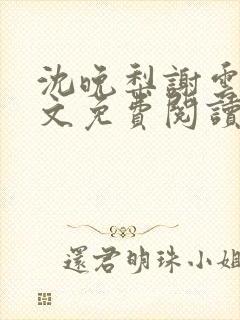 沈晚梨謝雲
文免費閱讀
還君明珠小姐